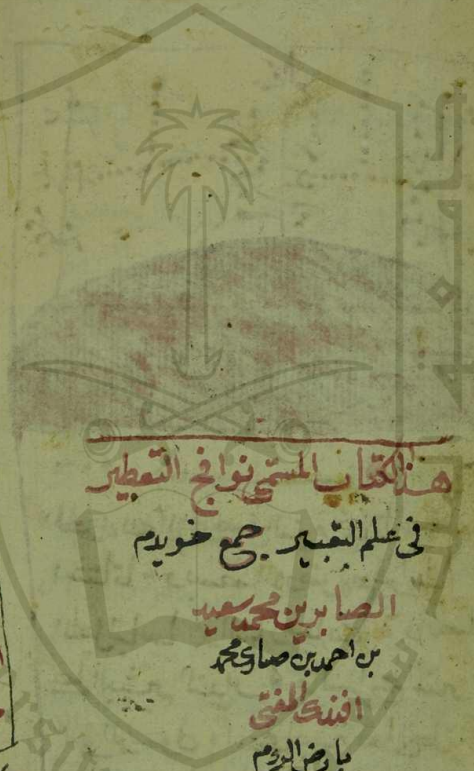 هذا الكتاب المسمى نوافح التعطير
في علم التعبير جمع خويدم
الصابرين محمد سعيد
بن احمد بن صارى محمد
افندى المفتى
بارض الروم